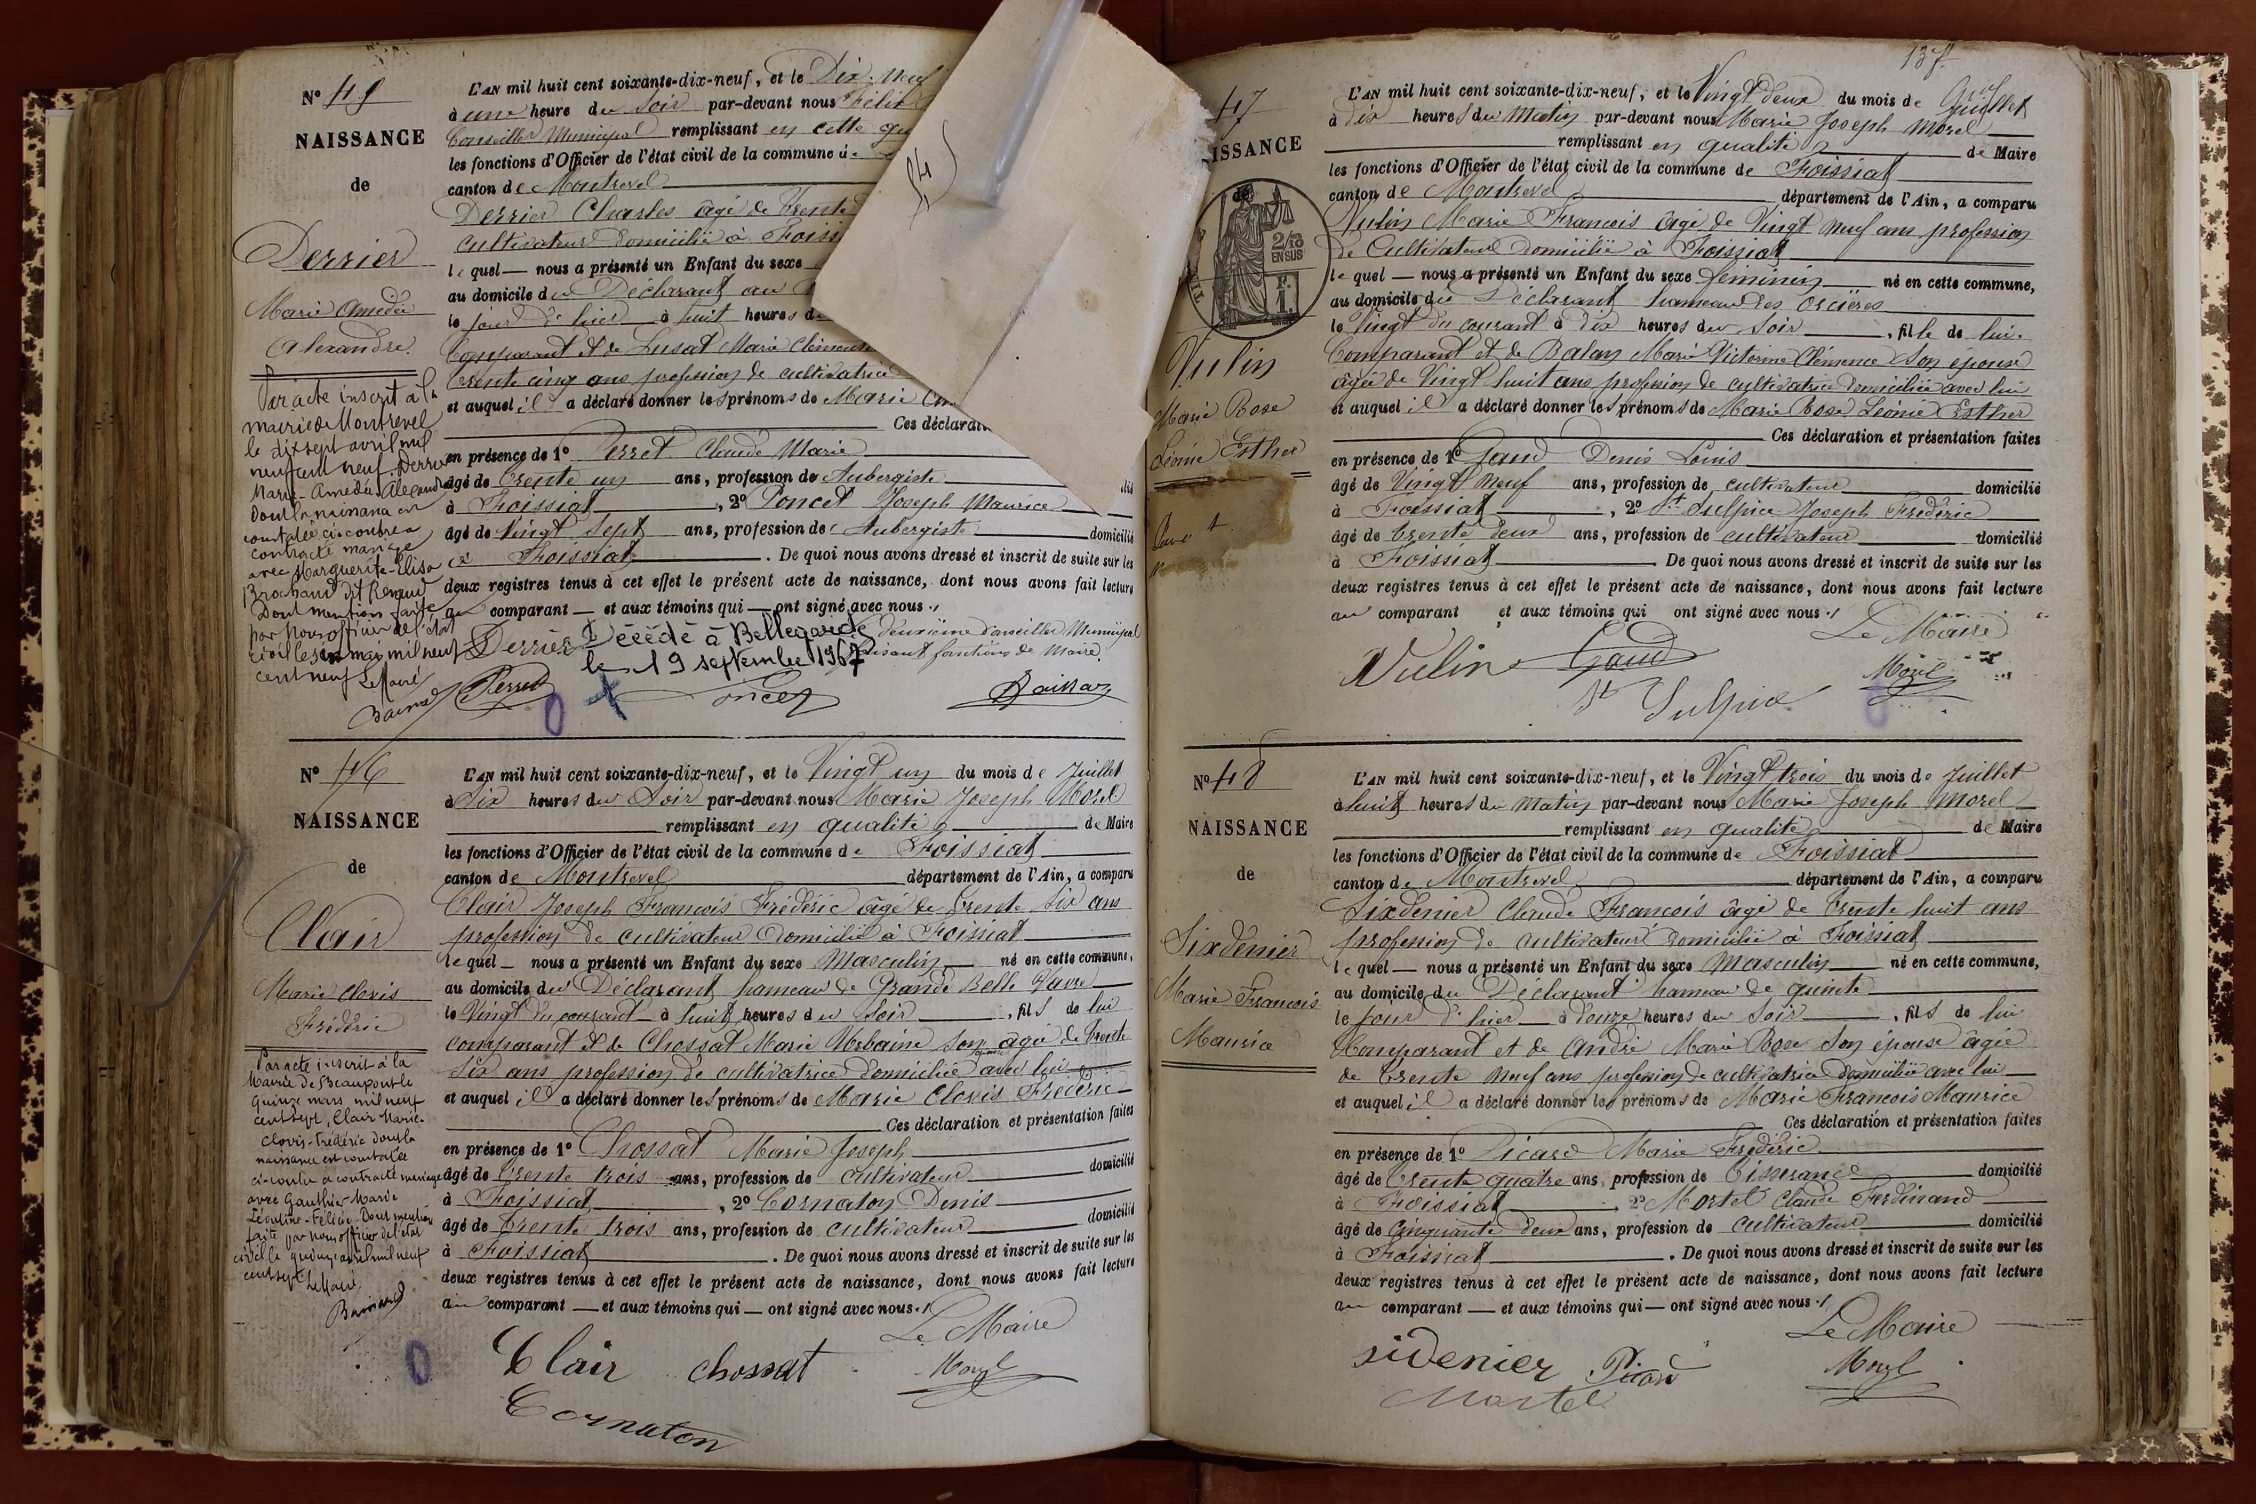 N° 45
NAISSANCE
de
Derrier
Marie Amédée
Alexandre.
Par acte inscrit à la
mairie de Montrevel
le dix sept avril mil
neuf cent neuf, Derrier
Marie-Amédée-Alexandre
dont la naissance est
constatée ci-contre a
contracté mariage
avec Marguerite-Elisa
Brochand dit Renaud
Dont mention faite
par nous officier de l'état
civil le mai mil neuf
cent neuf Le Maire
L'AN mil huit cent soixante-dix-neuf, et le Dix Neuf
à une heure du Soir par-devant nous Félix
Conseiller Municipal remplissant en cette
les fonctions d'Officier de l'état civil de la commune
canton de Montrevel
Derrier Charles âgé de Trente
cultivateur domicilié à
le quel — nous a présenté un Enfant du sexe
au domicile du Déclarant au
le jour d'hier à huit heures du
Comparant et de Lusat Marie Clémence
trente cinq ans profession de cultivatrice
et auquel il a déclaré donner les prénoms de Marie
Ces
en présence de 1° Perret Claude Marie
âgé de trente un ans, profession de Aubergiste
à Foissiat, 2° Poncet Joseph Maurice
âgé de Vingt Sept ans, profession de Aubergiste domicilié
à Foissiat. De quoi nous avons dressé et inscrit de suite sur les
deux registres tenus à cet effet le présent acte de naissance, dont nous avons fait lecture
au comparant — et aux témoins qui — ont signé avec nous ./
Le deuxième Conseiller Municipal
faisant fonctions de Maire.
Derrier Décédé à Bellegarde
le 19 septembre 1967
Perret Poncet
N° 46
NAISSANCE
de
Clair
Marie Clovis
Frédéric
Par acte inscrit à la
Mairie de Beaupont le
quinze mars mil neuf
cent sept, Clair Marie-
Clovis-Frédéric dont la
naissance est constatée
ci-contre a contracté mariage
avec Gauthier Marie
Léontine-Félicie Dont mention
faite par nous officier de l'état
civil le quinze avril mil neuf
cent sept Le Maire
L'AN mil huit cent soixante-dix-neuf, et le Vingt un du mois de Juillet
à Six heures du Soir par-devant nous Marie Joseph Morel
remplissant en qualité de Maire
les fonctions d'Officier de l'état civil de la commune de Foissiat
canton de Montrevel département de l'Ain, a comparu
Clair Joseph François Frédéric âgé de trente Six ans
profession de cultivateur domicilié à Foissiat
le quel — nous a présenté un Enfant du sexe Masculin né en cette commune,
au domicile du Déclarant hameau de Grande Belle Vavre
le Vingt du courant à huit heures du Soir, fils de lui
comparant et de Chossat Marie Urbaine Son épouse âgée de trente
Six ans profession de cultivatrice domiciliée avec lui
et auquel il a déclaré donner les prénoms de Marie Clovis Frédéric
Ces déclaration et présentation faites
en présence de 1° Chossat Marie Joseph
âgé de trente trois ans, profession de cultivateur domicilié
à Foissiat, 2° Cornaton Denis
âgé de trente trois ans, profession de cultivateur domicilié
à Foissiat. De quoi nous avons dressé et inscrit de suite sur les
deux registres tenus à cet effet le présent acte de naissance, dont nous avons fait lecture
au comparant — et aux témoins qui — ont signé avec nous ./
Le Maire
Clair chossat Morel
Cornaton
137
47
ISSANCE
de
2/10
EN SUS
F.
1.
Vulin
Marie Rose
Léonie Esther
L'AN mil huit cent soixante-dix-neuf, et le Vingt deux du mois de Juillet
à dix heures du Matin par-devant nous Marie Joseph Morel
remplissant en qualité de Maire
les fonctions d'Officier de l'état civil de la commune de Foissiat
canton de Montrevel département de l'Ain, a comparu
Vulin Marie François âgé de Vingt Neuf ans profession
de Cultivateur domicilié à Foissiat
le quel — nous a présenté un Enfant du sexe féminin né en cette commune,
au domicile du Déclarant hameau des Orcières
le Vingt du courant à dix heures du Soir, fille de lui.
Comparant et de Balan Marie Victorine Clémence Son épouse
âgée de Vingt huit ans profession de cultivatrice domiciliée avec lui
et auquel il a déclaré donner les prénoms de Marie Rose Léonie Esther
Ces déclaration et présentation faites
en présence de 1° Gaud Denis Louis
âgé de Vingt Neuf ans, profession de cultivateur domicilié
à Foissiat, 2° St Sulpice Joseph Frédéric
âgé de trente deux ans, profession de cultivateur domicilié
à Foissiat. De quoi nous avons dressé et inscrit de suite sur les
deux registres tenus à cet effet le présent acte de naissance, dont nous avons fait lecture
au comparant et aux témoins qui ont signé avec nous ./
Le Maire
Vulin Gaud Morel
St Sulpice
N° 48
NAISSANCE
de
Sixdenier
Marie François
Maurice
L'AN mil huit cent soixante-dix-neuf, et le Vingt trois du mois de Juillet
à huit heures du Matin par-devant nous Marie Joseph Morel
remplissant en qualité de Maire
les fonctions d'Officier de l'état civil de la commune de Foissiat
canton de Montrevel département de l'Ain, a comparu
Sixdenier Claude François âgé de trente huit ans
profession de cultivateur domicilié à Foissiat
le quel — nous a présenté un Enfant du sexe Masculin né en cette commune,
au domicile du Déclarant hameau de quinte
le jour d'hier à douze heures du Soir, fils de lui
Comparant et de André Marie Rose Son épouse âgée
de trente Neuf ans profession de cultivatrice domiciliée avec lui
et auquel il a déclaré donner les prénoms de Marie François Maurice
Ces déclaration et présentation faites
en présence de 1° Picard Marie Frédéric
âgé de trente quatre ans, profession de tisserand domicilié
à Foissiat, 2° Mortel Claude Ferdinand
âgé de Cinquante deux ans, profession de cultivateur domicilié
à Foissiat. De quoi nous avons dressé et inscrit de suite sur les
deux registres tenus à cet effet le présent acte de naissance, dont nous avons fait lecture
au comparant — et aux témoins qui — ont signé avec nous ./
Le Maire
sidenier Picard Morel
Mortel